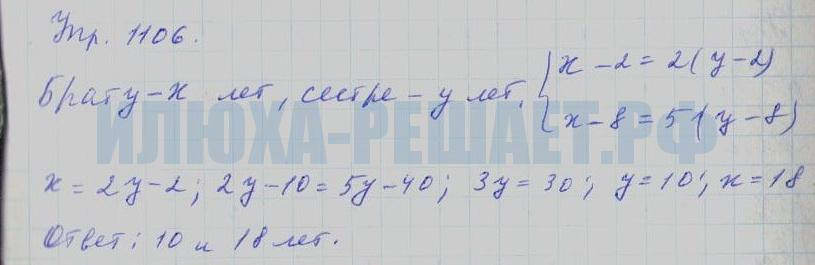 Упр. 1106.
Брату – x лет, сестре – y лет. { x – 2 = 2(y – 2)
x – 8 = 5(y – 8)
ИЛЮХА-РЕШАЕТ.РФ
x = 2y – 2; 2y – 10 = 5y – 40; 3y = 30; y = 10; x = 18
Ответ: 10 и 18 лет.